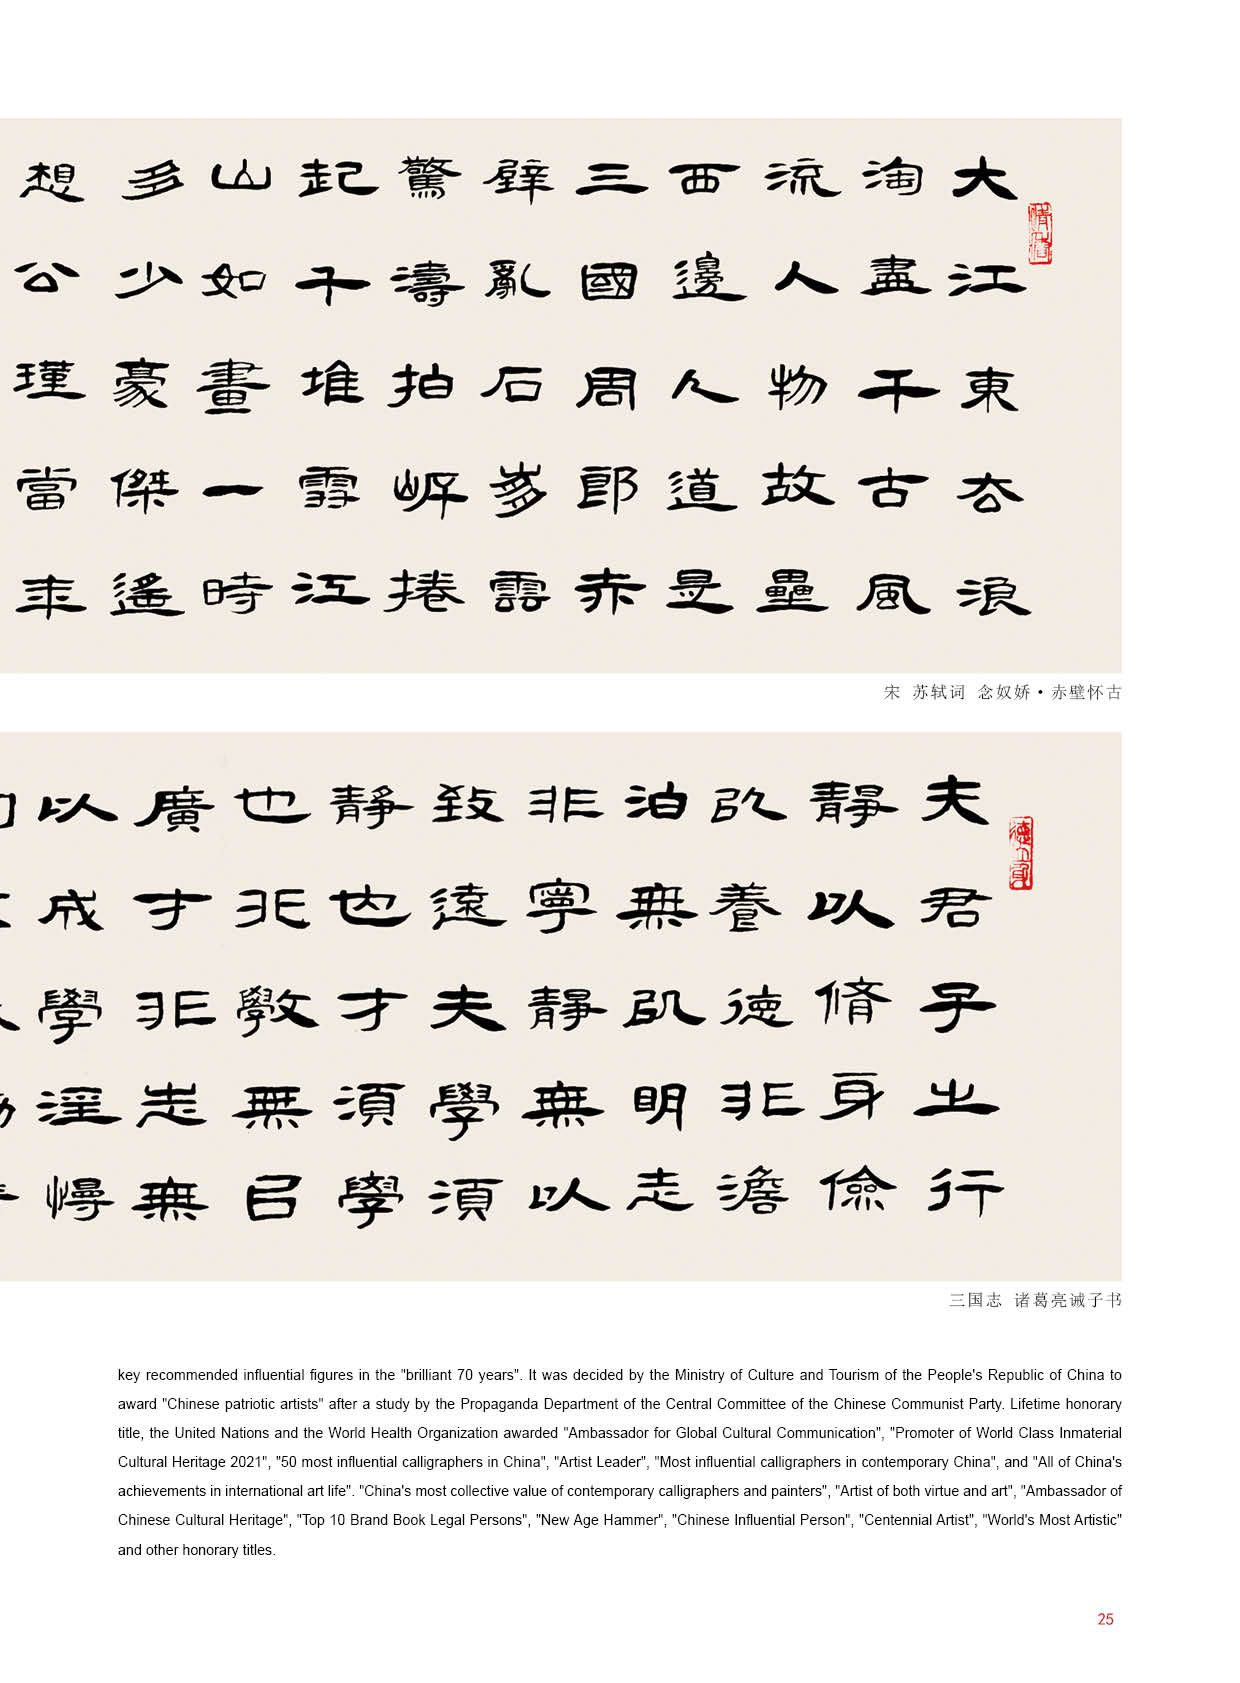 大江東去浪
淘盡千古風
流人物故壘
西邊人道是
三國周郎赤
壁亂石雲
驚濤拍岸捲
起千堆雪江
山如畫一時
多少豪傑遙
想公瑾當年
宋 苏轼词 念奴娇·赤壁怀古
夫君子之行
靜以脩身儉
以養德非澹
泊無以明志
非寧靜無以
致遠夫學須
靜也才須學
也非斆無以
廣才非志無
以成學淫慢
三国志 诸葛亮诫子书
key recommended influential figures in the "brilliant 70 years". It was decided by the Ministry of Culture and Tourism of the People's Republic of China to
award "Chinese patriotic artists" after a study by the Propaganda Department of the Central Committee of the Chinese Communist Party. Lifetime honorary
title, the United Nations and the World Health Organization awarded "Ambassador for Global Cultural Communication", "Promoter of World Class Inmaterial
Cultural Heritage 2021", "50 most influential calligraphers in China", "Artist Leader", "Most influential calligraphers in contemporary China", and "All of China's
achievements in international art life". "China's most collective value of contemporary calligraphers and painters", "Artist of both virtue and art", "Ambassador of
Chinese Cultural Heritage", "Top 10 Brand Book Legal Persons", "New Age Hammer", "Chinese Influential Person", "Centennial Artist", "World's Most Artistic"
and other honorary titles.
25